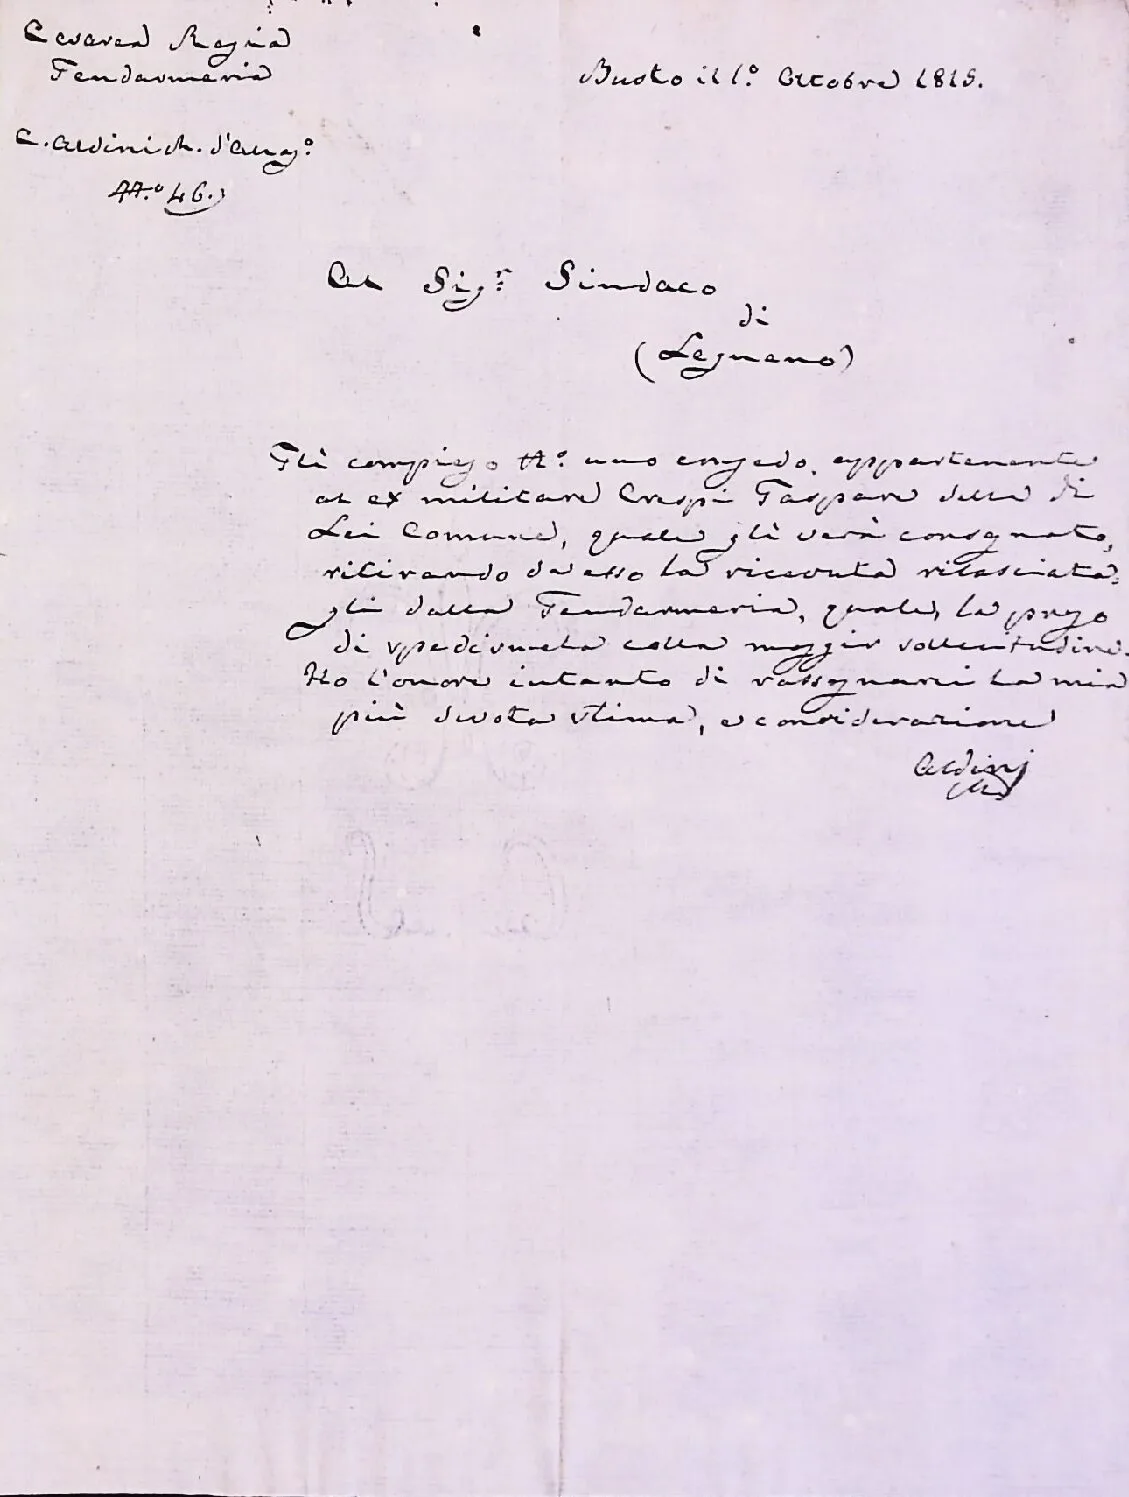 Cesarea Regia
Gendarmeria
Busto il 1.º Ottobre 1815.
C. Aldini M. d'Allog.º
N.º 46.
Al Sig.r Sindaco
di
(Legnano)
Gli compiego N.º uno congedo, appartenente
al ex militare Crespi Gaspare della di
Lei Comune, quale gli verà consegnato,
ritirando da esso la ricevuta rilasciata
gli dalla Gendarmeria, quale, la prego
di spedirmela colla maggior sollecitudine.
Ho l'onore intanto di rassegnarci la mia
più devota stima, e considerazione
Aldini